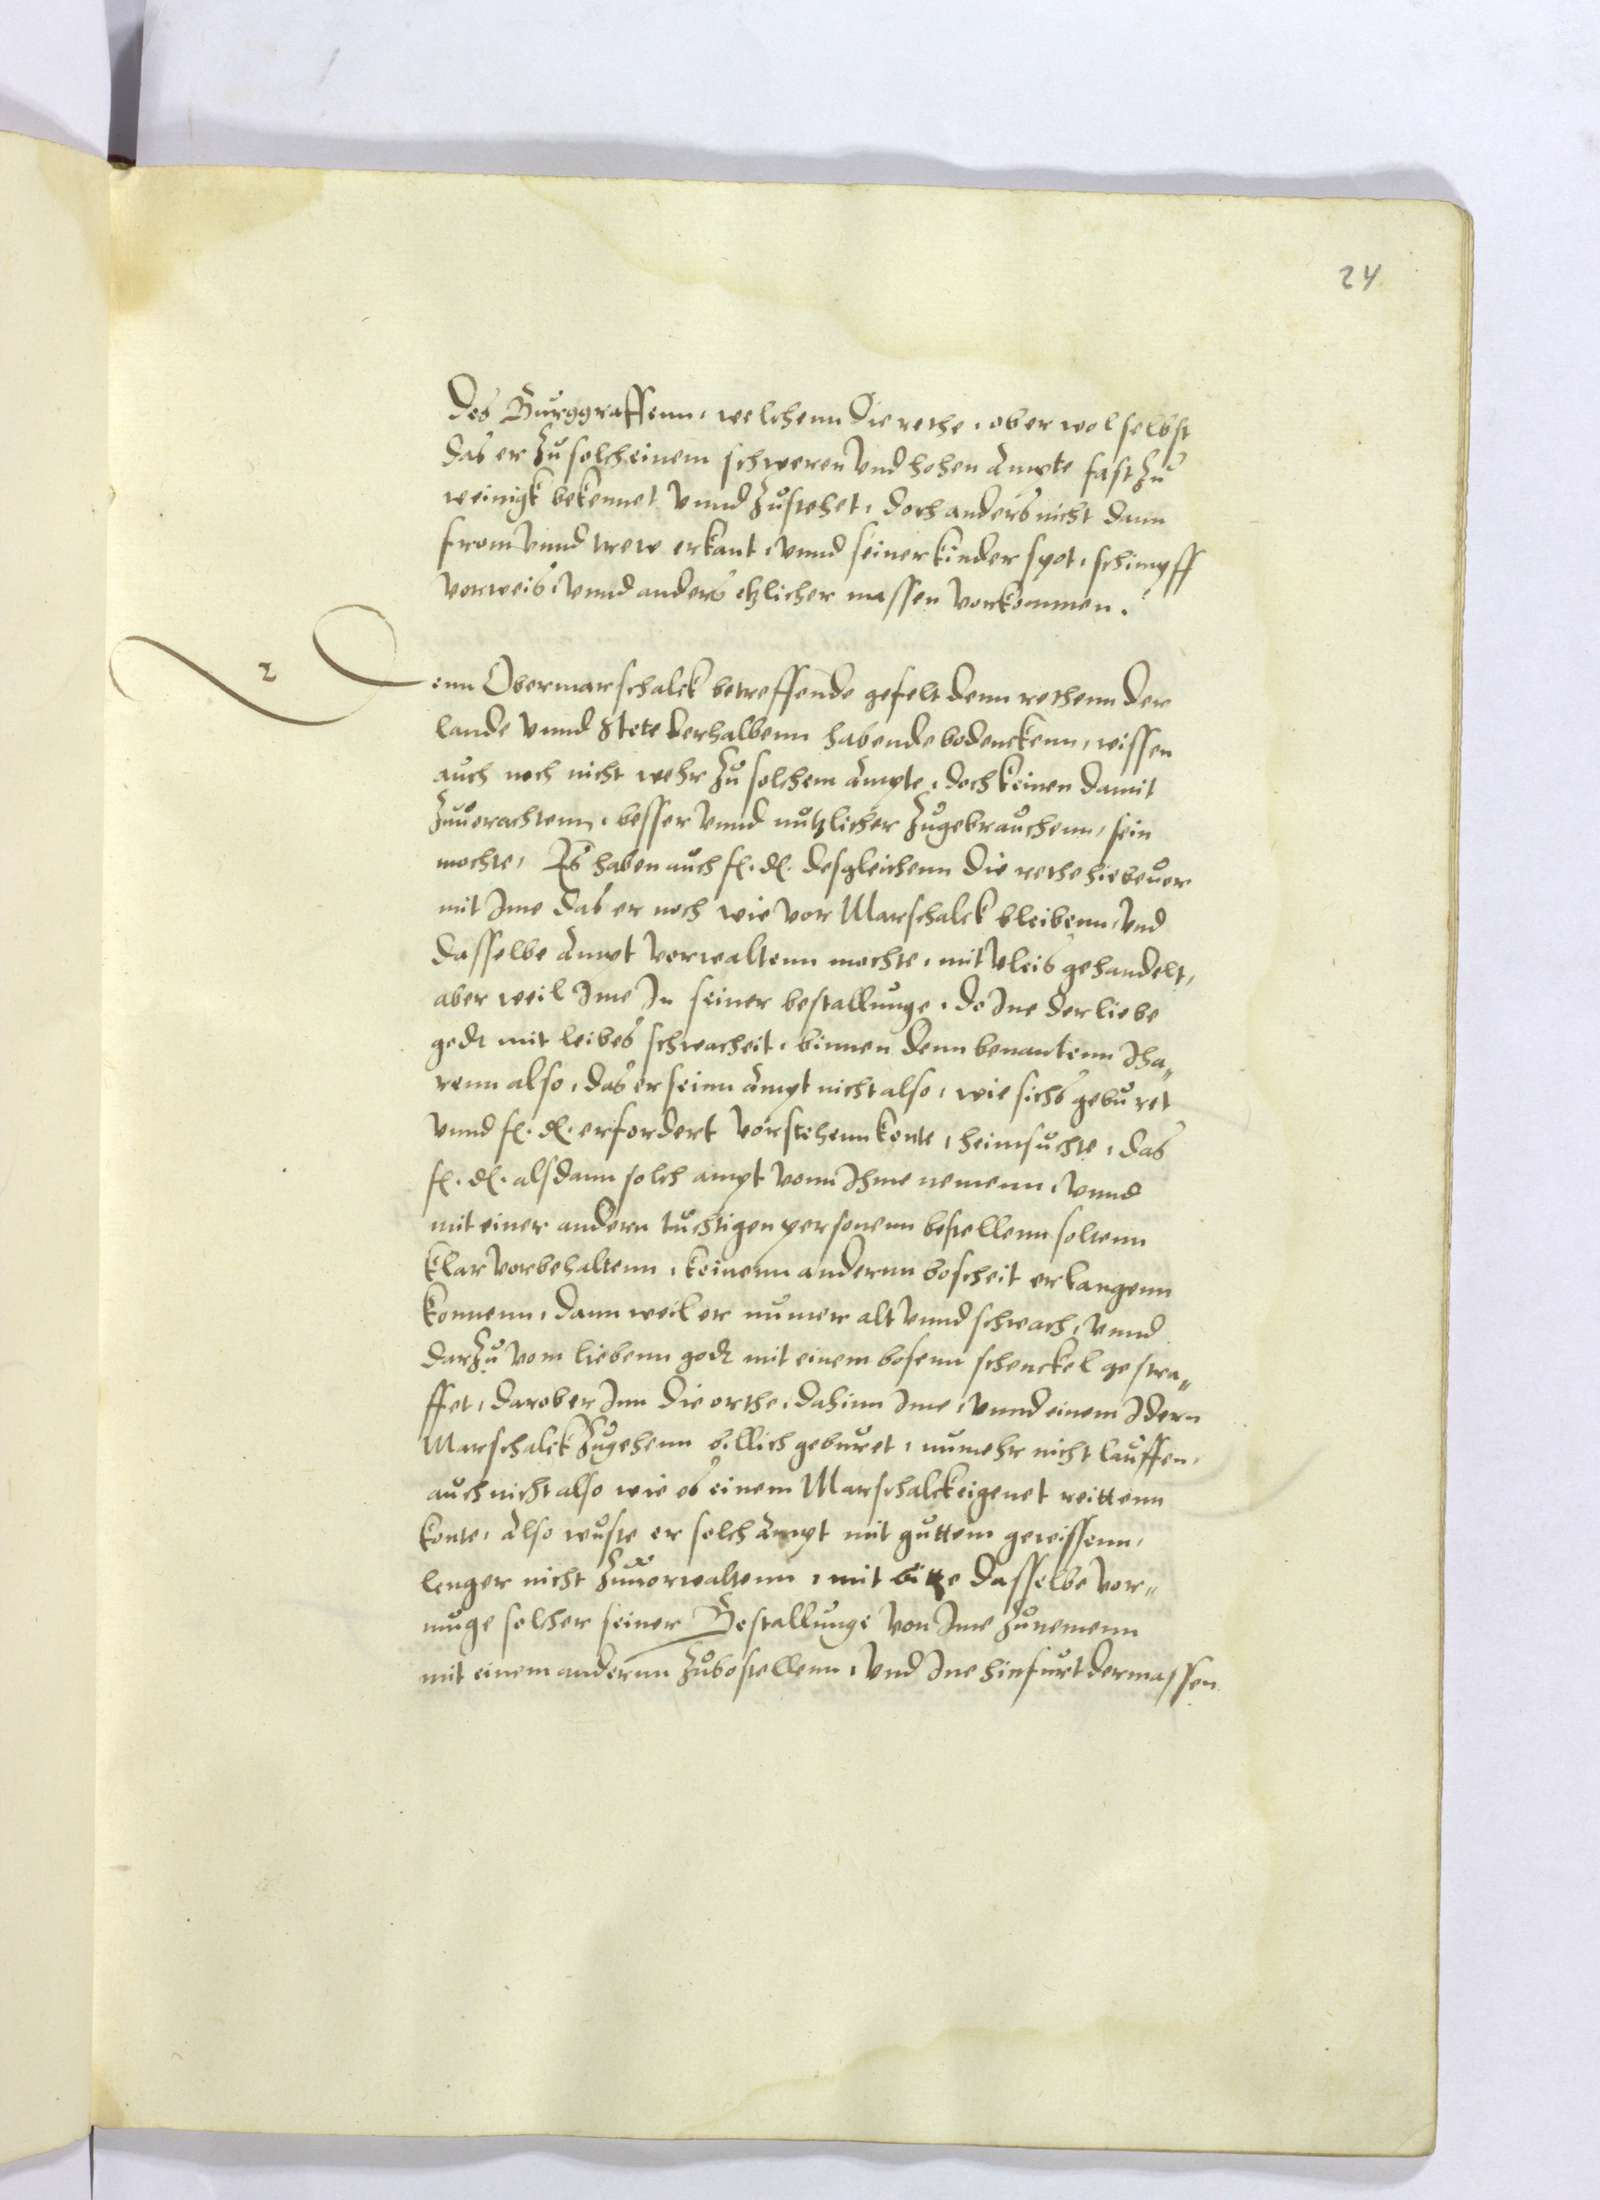 24
des Burggraffenn, welchenn die rethe, ob er wol selbst
das er zu solch einem schweren vnd hohen Ampte fast zu
weinigk bekennet vnnd zustehet, doch anders nicht dann
from vnnd trew erkant, vnnd seiner kinder spot, schimpff
vorweis, vnnd anders etzlicher massen vorkommen.
2
Denn Obermarschalck betreffende gefelt denn rethenn der
lande vnnd Stete derhalbenn habende bodenckenn, wissen
auch noch nicht wehr zu solchem Ampte, doch keinen damit
zuuorachtenn, besser vnnd nutzlicher zugebrauchenn, sein
mochte, Es haben auch f. d. desgleichenn die rethe hiebeuor
mit Ime das er noch wie vor Marschalck bleibenn, vnd
dasselbe Ampt vorwaltenn mochte, mit vleis gehandelt,
aber weil Ime In seiner bestallunge, do Ine der liebe
godt mit leibes schwacheit, binnen denn benantenn Iha„
renn also, das er seinn Ampt nicht also, wie sichs geburet
vnnd f. d. erfordert vorstehenn konte, heimsuchte, das
f. d. alsdann solch ampt vonn Ihme nemenn, vnnd
mit einer andern tuchtigen personenn bestellenn soltenn
klar vorbehaltenn, keinenn andernn boscheit erlangenn
konnenn, dann weil er numer alt vnnd schwach, vnnd
darzu vom liebenn godt mit einem bosenn schenckel gestra„
ffet, darober Inn die orthe, dahinn Ime, vnnd einem Idern
Marschalck zugehenn billich geburet, numehr nicht lauffen,
auch nicht also wie es einem Marschalck eigenet reittenn
konte, Also wuste er solch Ampt mit guttem gewissenn,
lenger nicht zuuorwaltenn, mit bitte dasselbe vor„
muge solcher seiner Bestallunge von Ime zunemenn
mit einem andernn zubostellenn, vnd Ine hinfurt dermassen